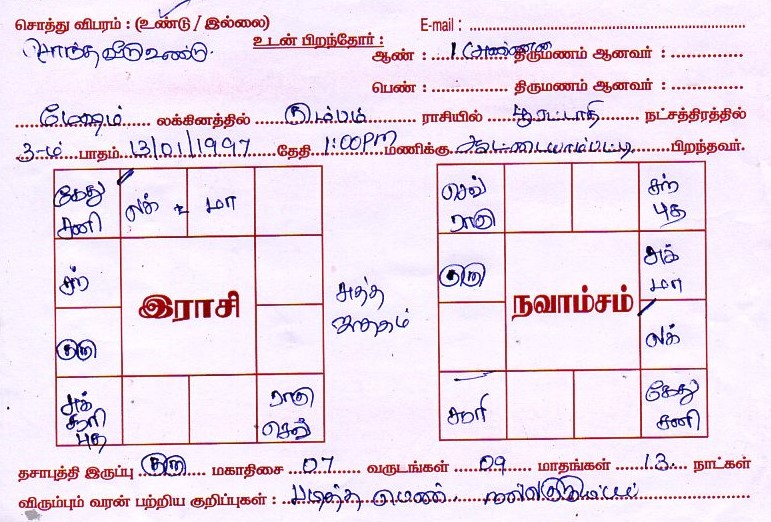 சொத்து விபரம் : (உண்டு / இல்லை) E-mail :
சொந்த வீடு உண்டு. உடன் பிறந்தோர் : ஆண் : 1 திருமணம் ஆனவர் :
பெண் : திருமணம் ஆனவர் :
மேஷம் லக்கினத்தில் கும்பம் ராசியில் பூரட்டாதி நட்சத்திரத்தில்
3-ம் பாதம் 13/01/1997 தேதி 1:00PM மணிக்கு பிறந்தவர்.
கேது சனி லக் மா செவ் ராகு சூ புத
சந் குரு சுக் மா
இராசி சுத்த ஜாதகம் நவாம்சம்
குரு லக்
சுக் சூரி புத ராகு செவ் சூரி கேது சனி
தசாபுத்தி இருப்பு குரு மகாதிசை 07 வருடங்கள் 09 மாதங்கள் 13 நாட்கள்
விரும்பும் வரன் பற்றிய குறிப்புகள் : படித்த பெண் நல்ல குடும்பம்